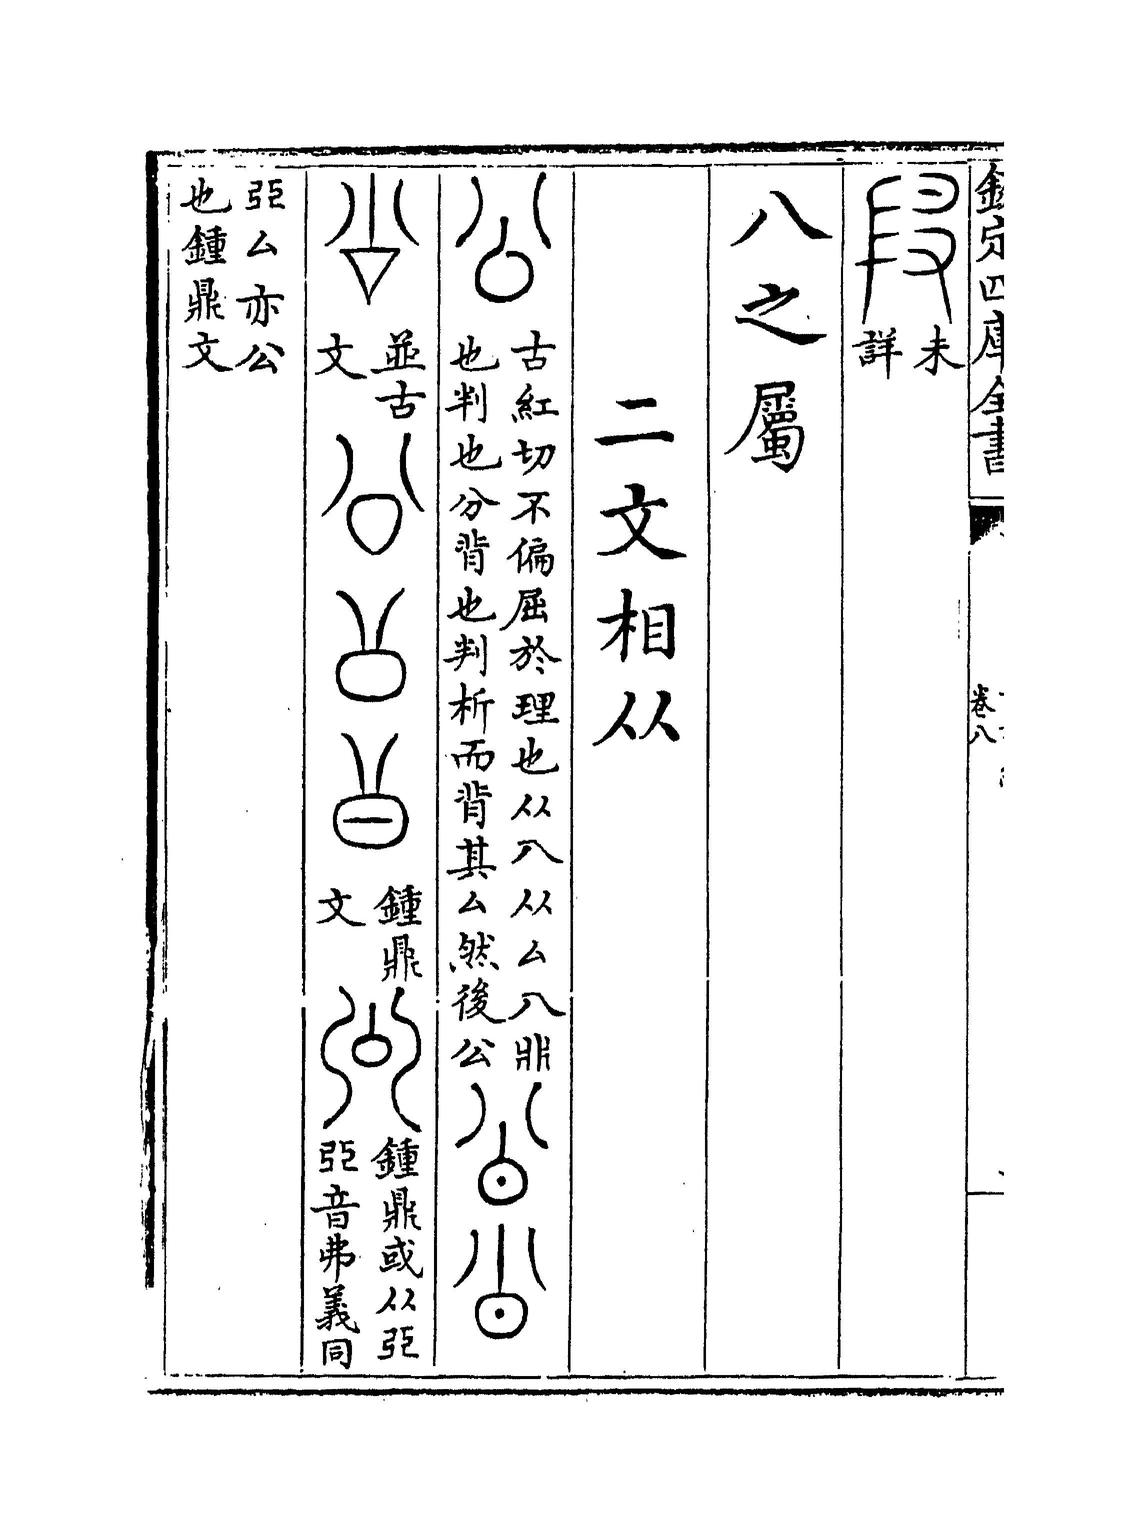 欽定四庫全書
卷八
未
詳
八之屬
二文相从
古紅切不偏屈於理也从八从厶八
也判也分背也判析而背其厶然後公
並古
文
鍾鼎
文
鍾鼎或从
音弗義同
厶亦公
也鍾鼎文